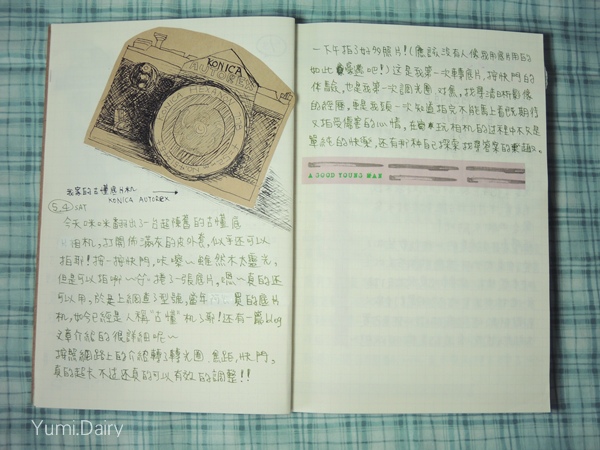 KONICA
我家的古董底片机
KONICA AUTOREX
5.4 SAT
今天咪咪翻出了一台超陳舊的古董底
片相机,打開佈滿灰的皮外套,似乎还可以
拍耶!按一按快門,咔嚓~雖然不太靈光,
但是可以拍啲~ 捲了一張底片,嗯~真的还
可以用,於是上網查了型號,當年 的底片
机,如今已經是人稱"古董"机了耶!还有一篇blog
文章介紹的很詳細呢~
按照網路上的介紹轉了轉光圈、焦距,快門,
真的超卡不过还真的可以有效的調整!!
一下午拍了好多照片!(應該没有人像我用底片用的
如此 吧!)这是我第一次轉底片,按快門的
体驗,也是第一次調光圈、对焦,找尋清晰影像
的經歷,更是我頭一次知道拍完不能馬上看既期待
又怕受傷害的心情,在 玩相机的过程中不只是
單純的快樂,还有那种自己探索找尋答案的樂趣。
A GOOD YOUNG MAN
Yumi.Dairy